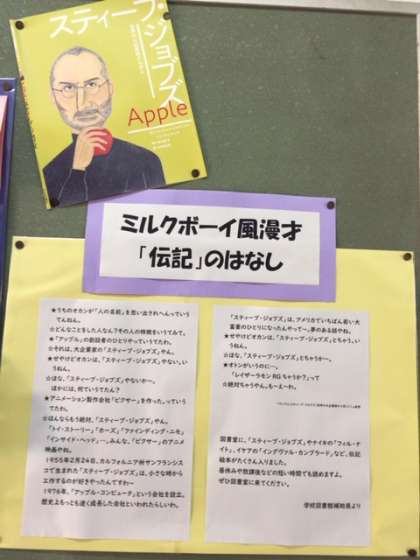 スティーブ・ジョブズ
Apple
ミルクボーイ風漫才
「伝記」のはなし
★うちのオカンが「人の名前」を思い出されへんっていう
てんねん。
☆どんなことをした人なん？その人の特徴をいうてみて。
★「アップル」の創設者のひとりやっていうてたわ。
☆それは、大企業家の「スティーブ・ジョブズ」やん。
★せやけどオカンは、「スティーブ・ジョブズ」やない、い
うねん。
☆ほな、「スティーブ・ジョブズ」やないか〜。
ほかには、何ていうてたん？
★アニメーション製作会社「ピクサー」を作った、っていう
てたわ。
☆ほんならもう絶対、「スティーブ・ジョブズ」やん。
「トイ・ストーリー」、「カーズ」「ファインディング・ニモ」
「インサイド・ヘッド」…、みんな、「ピクサー」のアニメ
映画やね。
1955年2月24日、カルフォルニア州サンフランシス
コで生まれた「スティーブ・ジョブズ」は、小さな時から
工作するのが好きやったんですわ〜
1976年、「アップル・コンピュータ」という会社を設立。
歴史上もっとも速く成長した会社といわれたらしいわ。
「スティーブ・ジョブズ」は、アメリカでいちばん若い大
富豪のひとりになったんやって〜。夢のある話やね。
★せやけどオカンは、「スティーブ・ジョブズ」とちゃう、い
うねん。
☆ほな、「スティーブ・ジョブズ」とちゃうか〜。
★オトンがいうのに〜、
「レイザーラモンRGちゃうか？」って
☆絶対ちゃうやん。も〜え〜わ。
図書室に、「スティーブ・ジョブズ」やナイキの「フィル・ナ
イト」、イケアの「イングヴァル・カンプラード」など、伝記
絵本がたくさん入りました。
昼休みや放課後などの短い時間でも読めますよ。
ぜひ図書室に来てください。
学校図書館補助員より